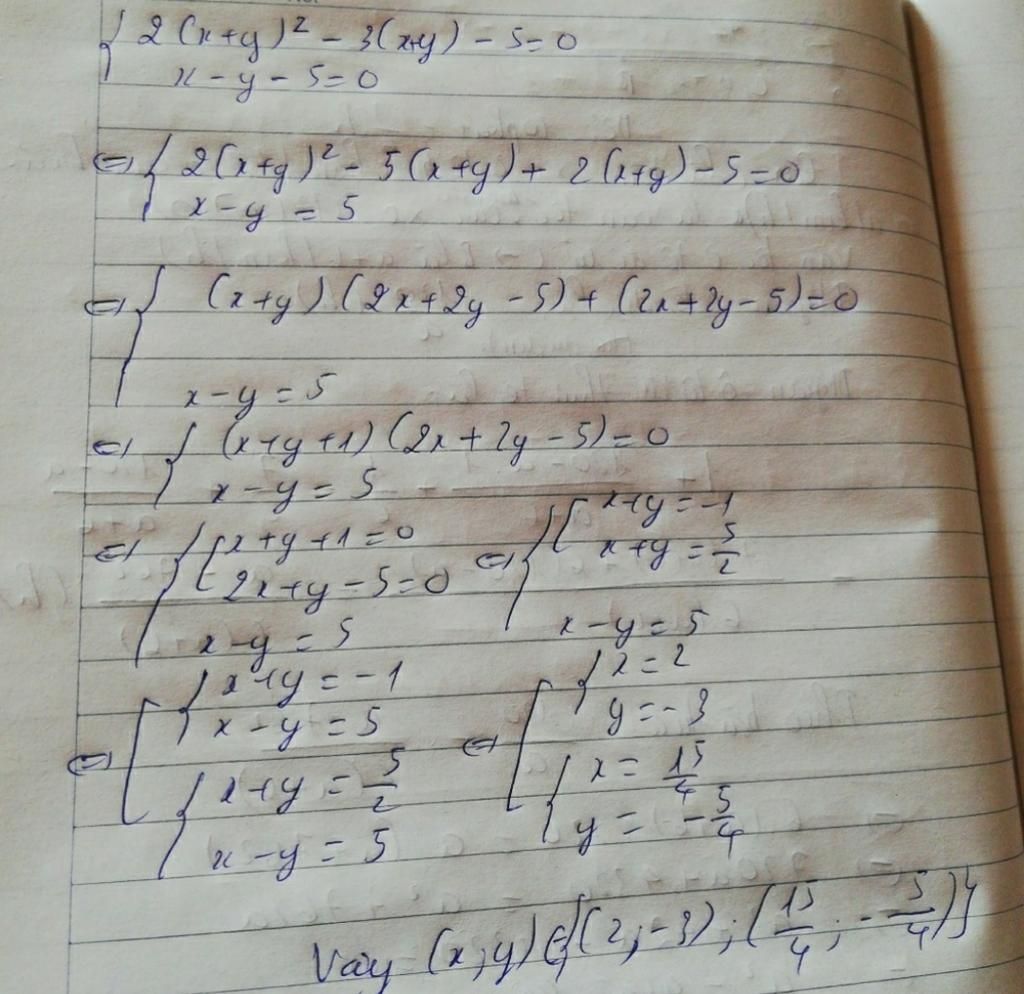 { 2(x+y)² - 3(x+y) - 5 = 0
x - y - 5 = 0
⇔ { 2(x+y)² - 5(x+y) + 2(x+y) - 5 = 0
x - y = 5
⇔ { (x+y)(2x+2y-5) + (2x+2y-5) = 0
x - y = 5
⇔ { (x+y+1)(2x+2y-5) = 0
x - y = 5
⇔ { [ x+y+1 = 0
2x+y-5 = 0
x - y = 5
⇔ { [ x+y = -1
x+y = 5/2
x - y = 5
⇔ [ { x+y = -1
x - y = 5
{ x+y = 5/2
x - y = 5
⇔ [ { x = 2
y = -3
{ x = 15/4
y = -5/4
Vậy (x;y) ∈ {(2;-3); (15/4; -5/4)}